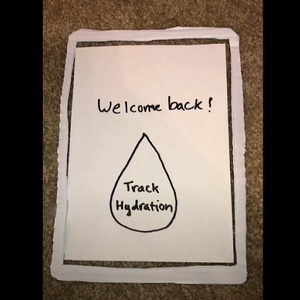 Welcome back!
Track
Hydration